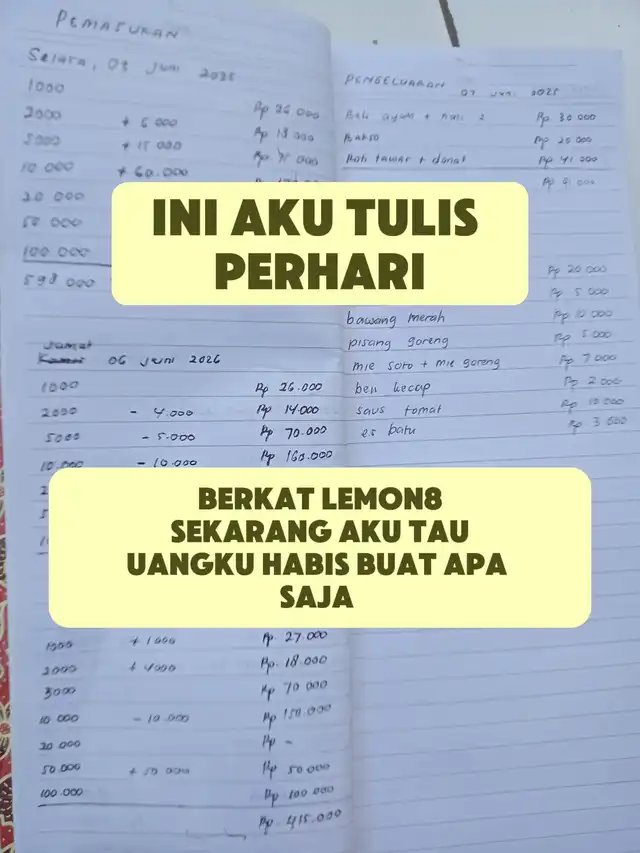 PEMASUKAN
Selasa, 03 Juni 2025
1000 Rp 26 000
2000 + 6 000 Rp 18 000
5000 + 15 000 Rp 75 000
10 000 + 60.000
20 000
50 000
100 000
598 000
PENGELUARAN 07 Juni 2025
Beli ayam + nasi 2 Rp 30 000
Bakso Rp 20 000
Roti tawar + donat Rp 41 000
Rp 91 000
INI AKU TULIS
PERHARI
Rp 20 000
Rp 5 000
bawang merah Rp 10 000
pisang goreng Rp 5 000
mie soto + mie goreng Rp 7 000
beli kecap Rp 2 000
saus tomat Rp 10 000
es batu Rp 3 000
Jumat
06 Juni 2026
1000 Rp 26.000
2000 - 4.000 Rp 14.000
5000 - 5.000 Rp 70.000
10.000 - 10.000 Rp 160.000
BERKAT LEMON8
SEKARANG AKU TAU
UANGKU HABIS BUAT APA
SAJA
1000 + 1000 Rp. 27.000
2000 + 4000 Rp. 18.000
5000 Rp 70 000
10 000 - 10.000 Rp 150.000
20.000 Rp -
50.000 + 50 000 Rp 50 000
100.000 Rp 100 000
Rp. 415.000